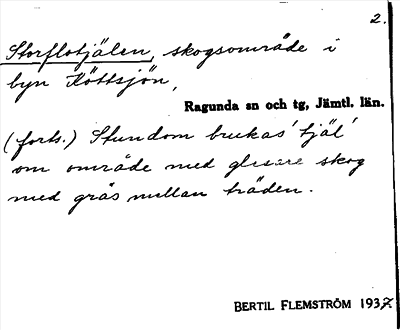 2.
Storflotjälen, skogsområde i
byn Köttsjön,
Ragunda sn och tg, Jämtl. län.
(forts.) Stundom brukas 'tjäl'
om område med glesare skog
med gräs mellan träden.
BERTIL FLEMSTRÖM 1937